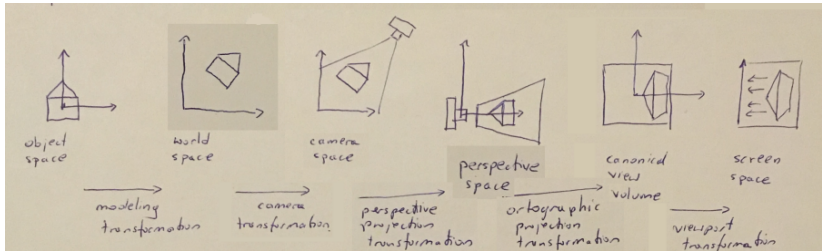 object
space
world
space
camera
space
perspective
space
canonical
view
volume
screen
space
modeling
transformation
camera
transformation
perspective
projection
transformation
ortographic
projection
transformation
viewport
transformation